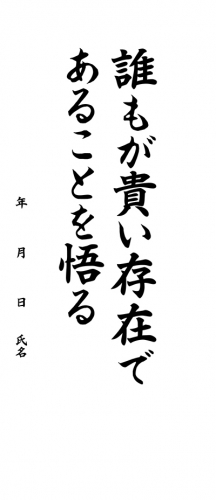 誰もが貴い存在で
あることを悟る
年　月　日　氏名